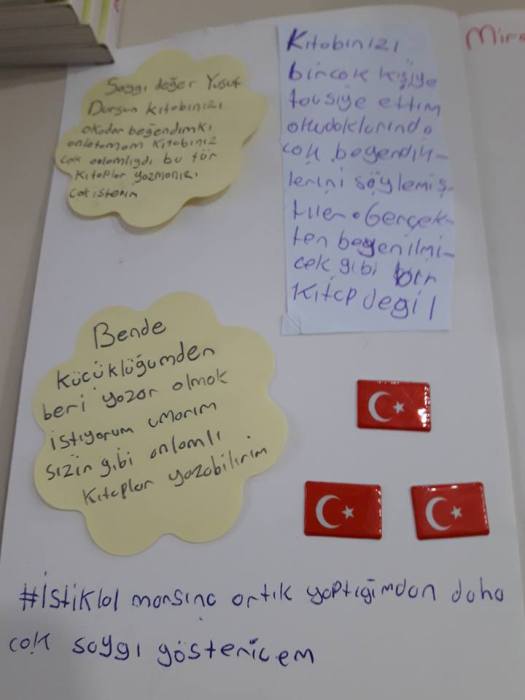 Saygı değer Yusuf
Dursun kitabınızı
okadar beğendimki
anlatamam kitabınız
çok anlamlıydı bu tür
kitaplar yazmanızı
çok isterim
Kitabınızı
birçok kişiye
tavsiye ettim
okuduklarında
çok beğendik-
lerini söylemiş-
tiler. Gerçek-
ten beyenilmi-
cek gibi bir
kitap değil
Bende
küçüklüğümden
beri yazar olmak
istiyorum umarım
sizin gibi anlamlı
kitaplar yazabilirim
#İstiklal marşına artık yaptığımdan daha
çok saygı göstericem